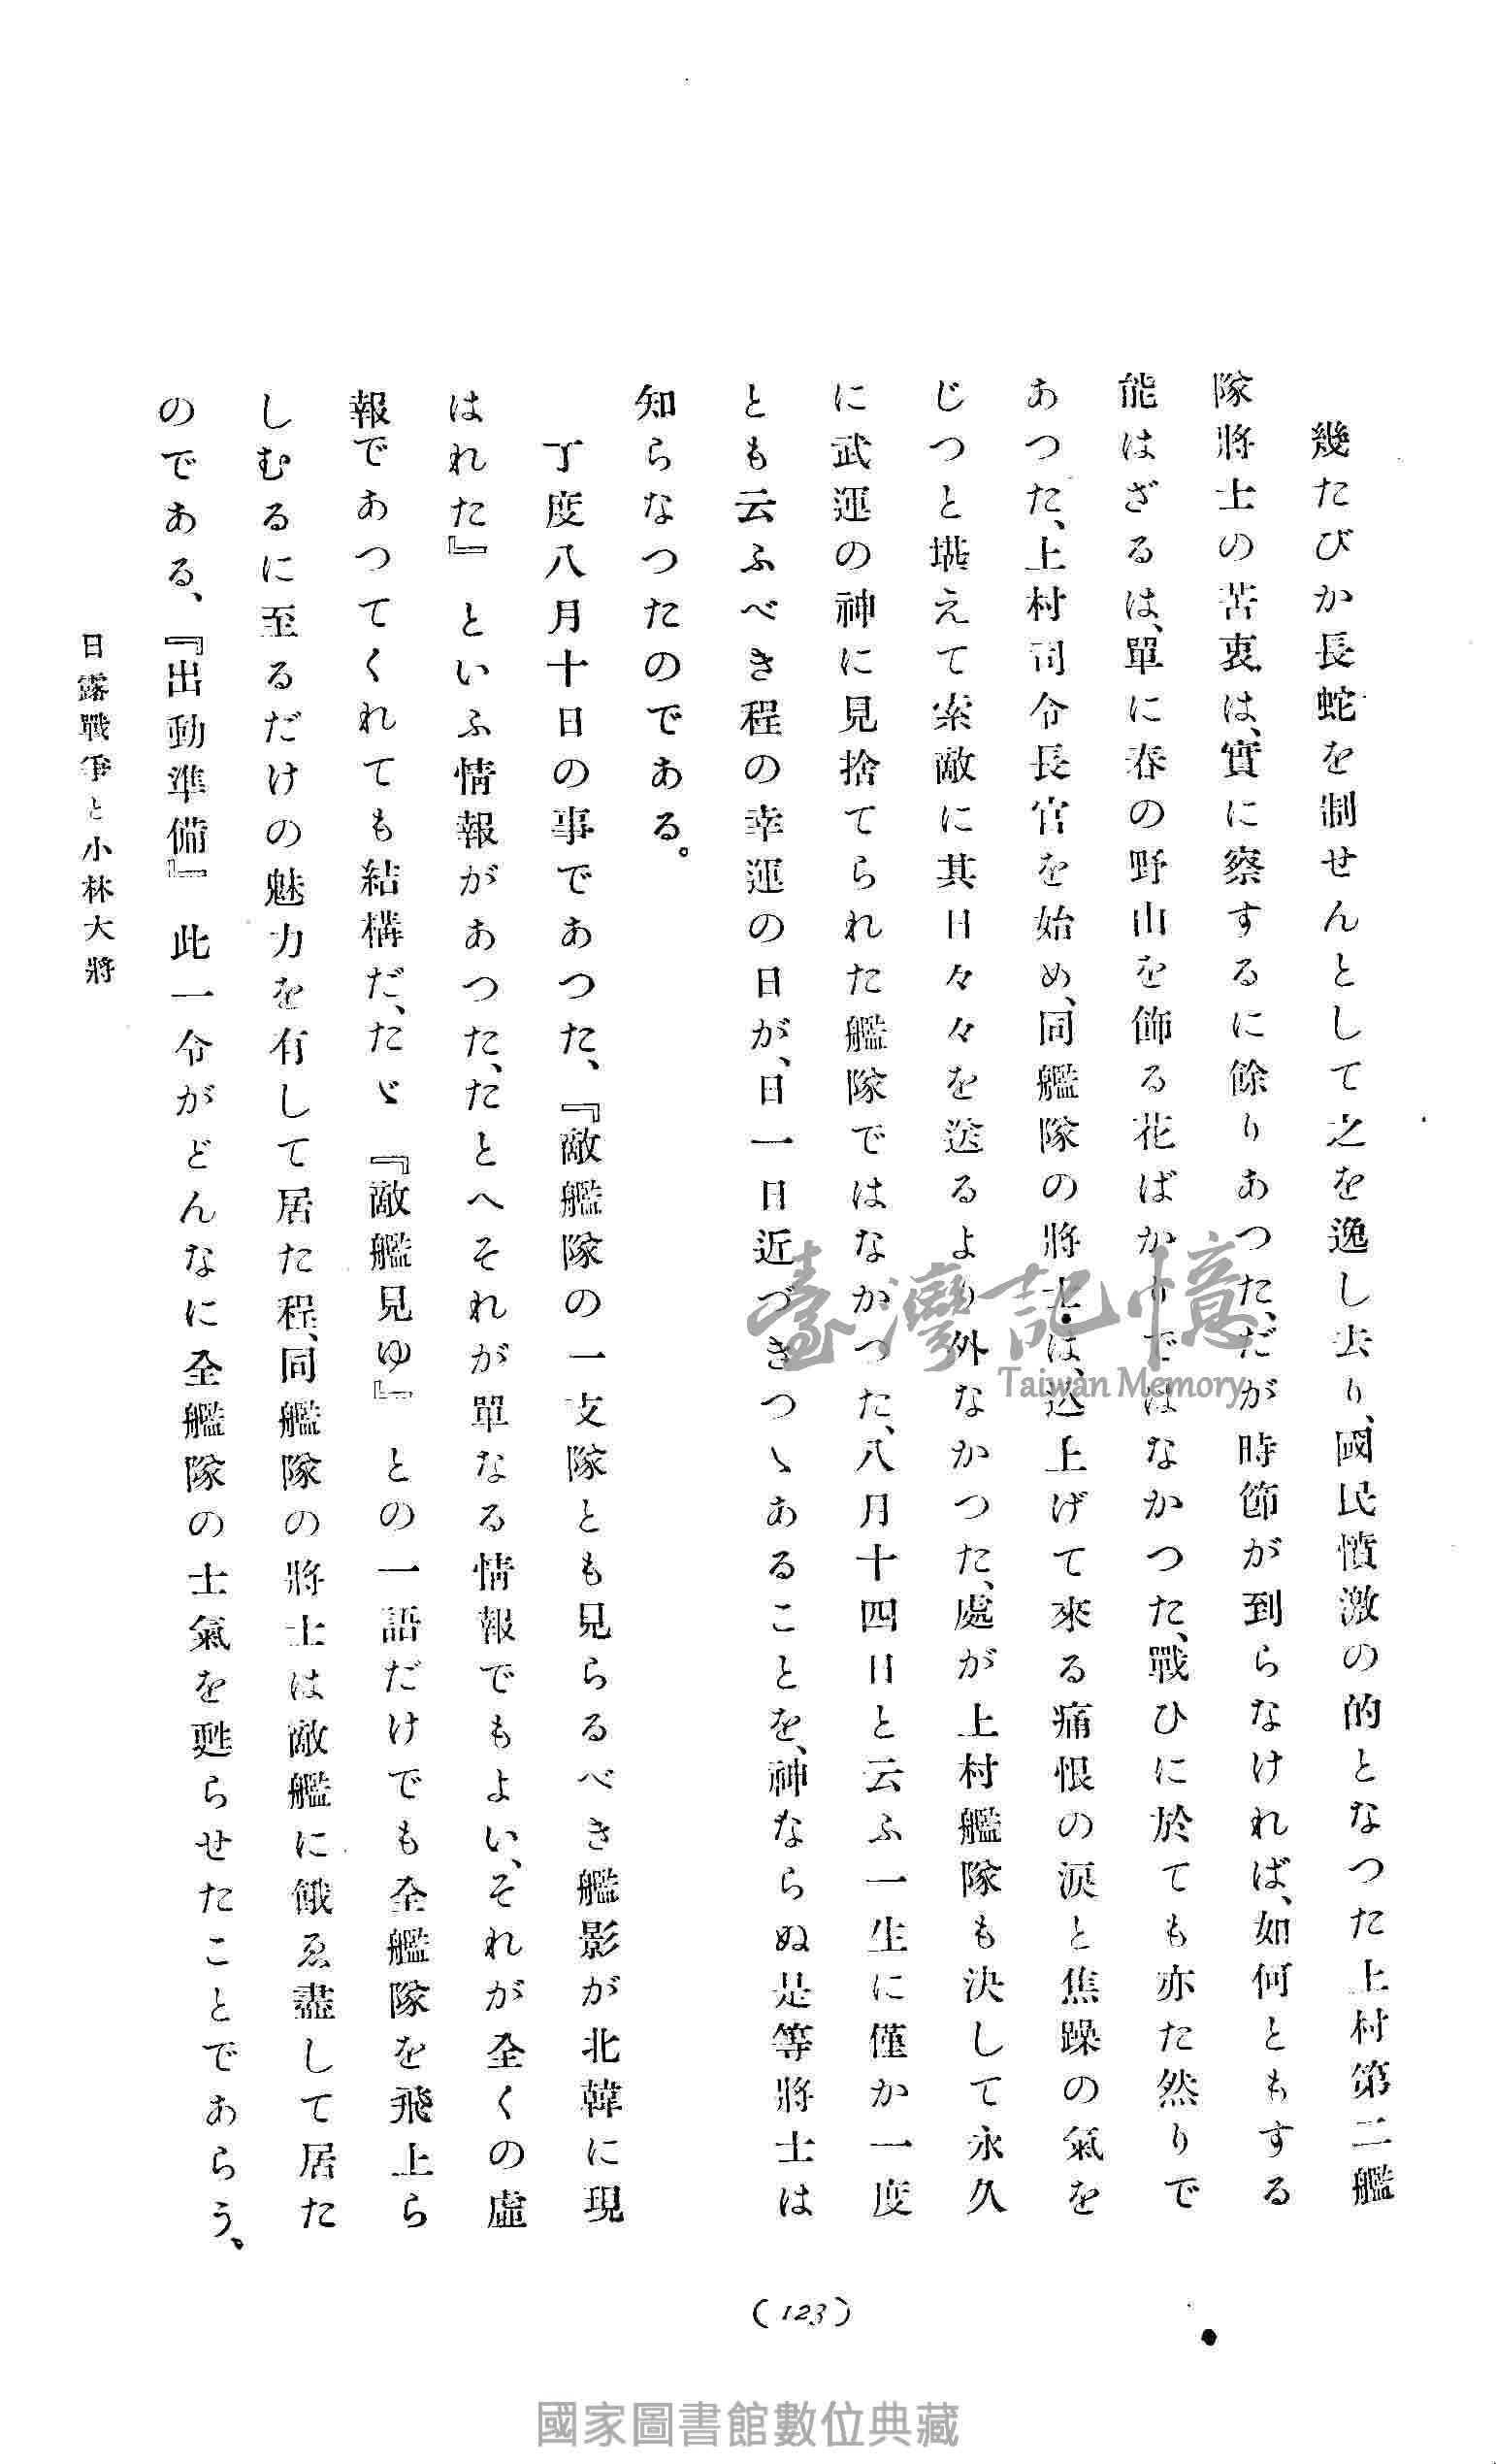 幾たびか長蛇を制せんとして之を逸し去り、國民憤激の的となつた上村第二艦
隊將士の苦衷は、實に察するに餘りあつた、だが時節が到らなければ、如何ともする
能はざるは、單に春の野山を飾る花ばかりではなかつた、戰ひに於ても亦た然りで
あつた、上村司令長官を始め、同艦隊の將士は、込上げて來る痛恨の涙と焦躁の氣を
じつと堪えて索敵に其日々々を送るより外なかつた、處が上村艦隊も決して永久
に武運の神に見捨てられた艦隊ではなかつた、八月十四日と云ふ一生に僅か一度
とも云ふべき程の幸運の日が、日一日近づきつゝあることを、神ならぬ是等將士は
知らなつたのである。
丁度八月十日の事であつた、『敵艦隊の一支隊とも見らるべき艦影が北韓に現
はれた』といふ情報があつた、たとへそれが單なる情報でもよい、それが全くの虛
報であつてくれても結構だ、たゞ『敵艦見ゆ』との一語だけでも全艦隊を飛上ら
しむるに至るだけの魅力を有して居た程、同艦隊の將士は敵艦に餓ゑ盡して居た
のである、『出動準備』此一令がどんなに全艦隊の士氣を甦らせたことであらう、
日露戰爭と小林大將
(123)
臺灣記憶
Taiwan Memory
國家圖書館數位典藏